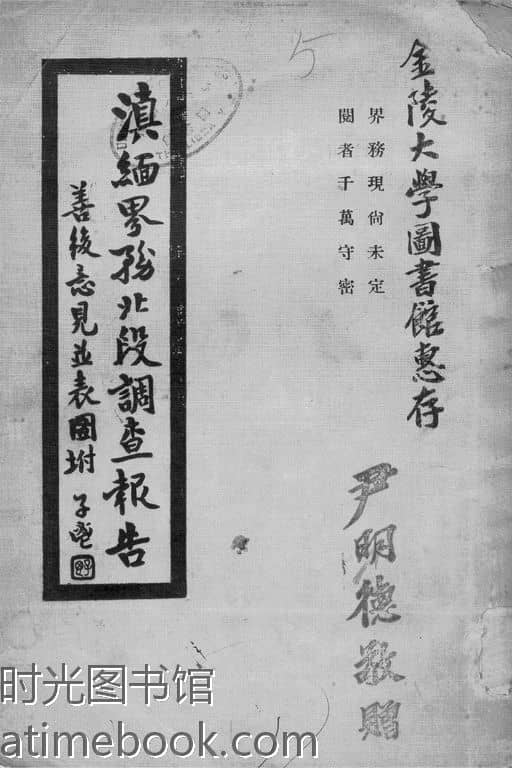 金陵大學圖書館惠存
界務現尙未定
閱者千萬守密
尹明德敬贈
滇緬界務北段調查報告
善後意見並表圖坿
5
时光图书馆
atimebook.com